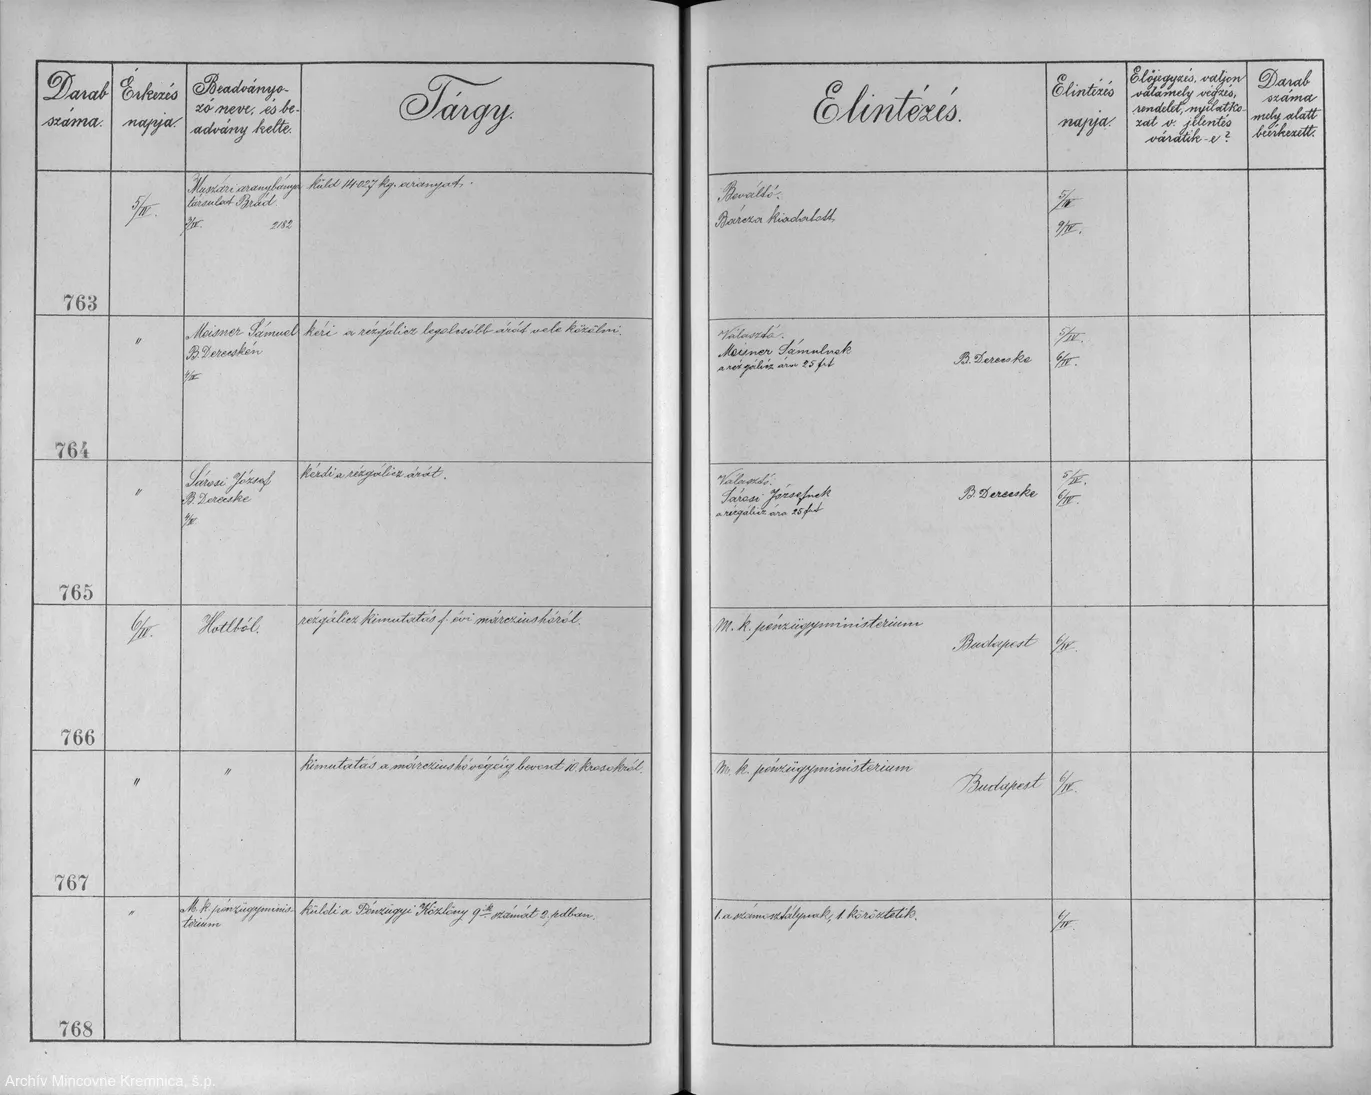 Darab
száma.
Érkezés
napja.
Beadványo-
zó neve, és be-
advány kelte.
Tárgy.
Elintézés.
Elintézés
napja.
Előjegyzés, valjon
valamely végzés,
rendelet, nyilatko-
zat v. jelentés
váratik-e?
Darab
száma
mely alatt
beérkezett.
763
5/IV.
Muszári aranybánya
társulat Brád
3/IV. 2182
küld 14027 kg. aranyat.
Beváltó.
Bárcza kiadatott,
5/IV
9/IV.
764
"
Meisner Sámuel
B. Derecskén
4/IV
kéri a rézgálicz legolcsóbb árát vele közölni.
Választó.
Meisner Sámulnek
a rézgálicz ára 25 frt
B. Derecske
5/IV.
6/IV.
765
"
Sárosi József
B. Derecske
4/IV.
kérdi a rézgálicz árát.
Választó.
Sárosi Józsefnek
a rézgálicz ára 25 frt
B. Derecske
5/IV.
6/IV.
766
6/IV.
Hotlból.
rézgálicz kimutatás f. évi márcziushóról.
M. k. pénzügyministerium
Budapest
6/IV.
767
"
"
kimutatás a márcziushó végéig bevont 10. krosokról.
M. k. pénzügyministerium
Budapest
6/IV.
768
"
M. k. pénzügyminis-
térium
küldi a Pénzügyi Közlöny 9ik számát 2. pdban.
1 a számosztálynak, 1 köröztetik.
6/IV.
Archív Mincovne Kremnica, š.p.